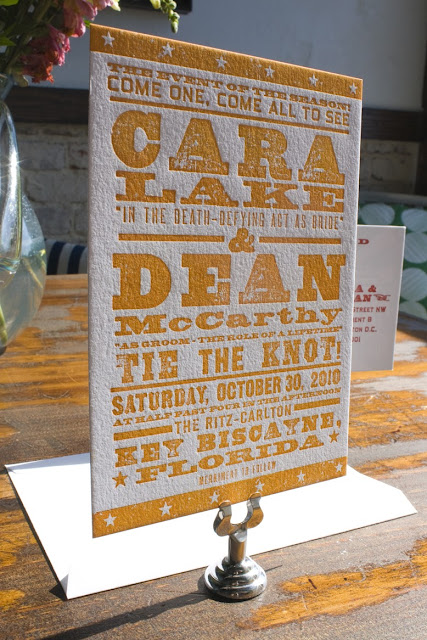 THE EVENT OF THE SEASON!
COME ONE, COME ALL TO SEE
CARA
LAKE
"IN THE DEATH-DEFYING ACT AS BRIDE"
&
DEAN
McCarthy
"AS GROOM - THE ROLE OF A LIFETIME"
TIE THE KNOT!
SATURDAY, OCTOBER 30, 2010
AT HALF PAST FOUR IN THE AFTERNOON
THE RITZ-CARLTON
KEY BISCAYNE,
FLORIDA
MERRIMENT TO FOLLOW
D
A &
AN
STREET NW
MENT B
TON D.C.
001